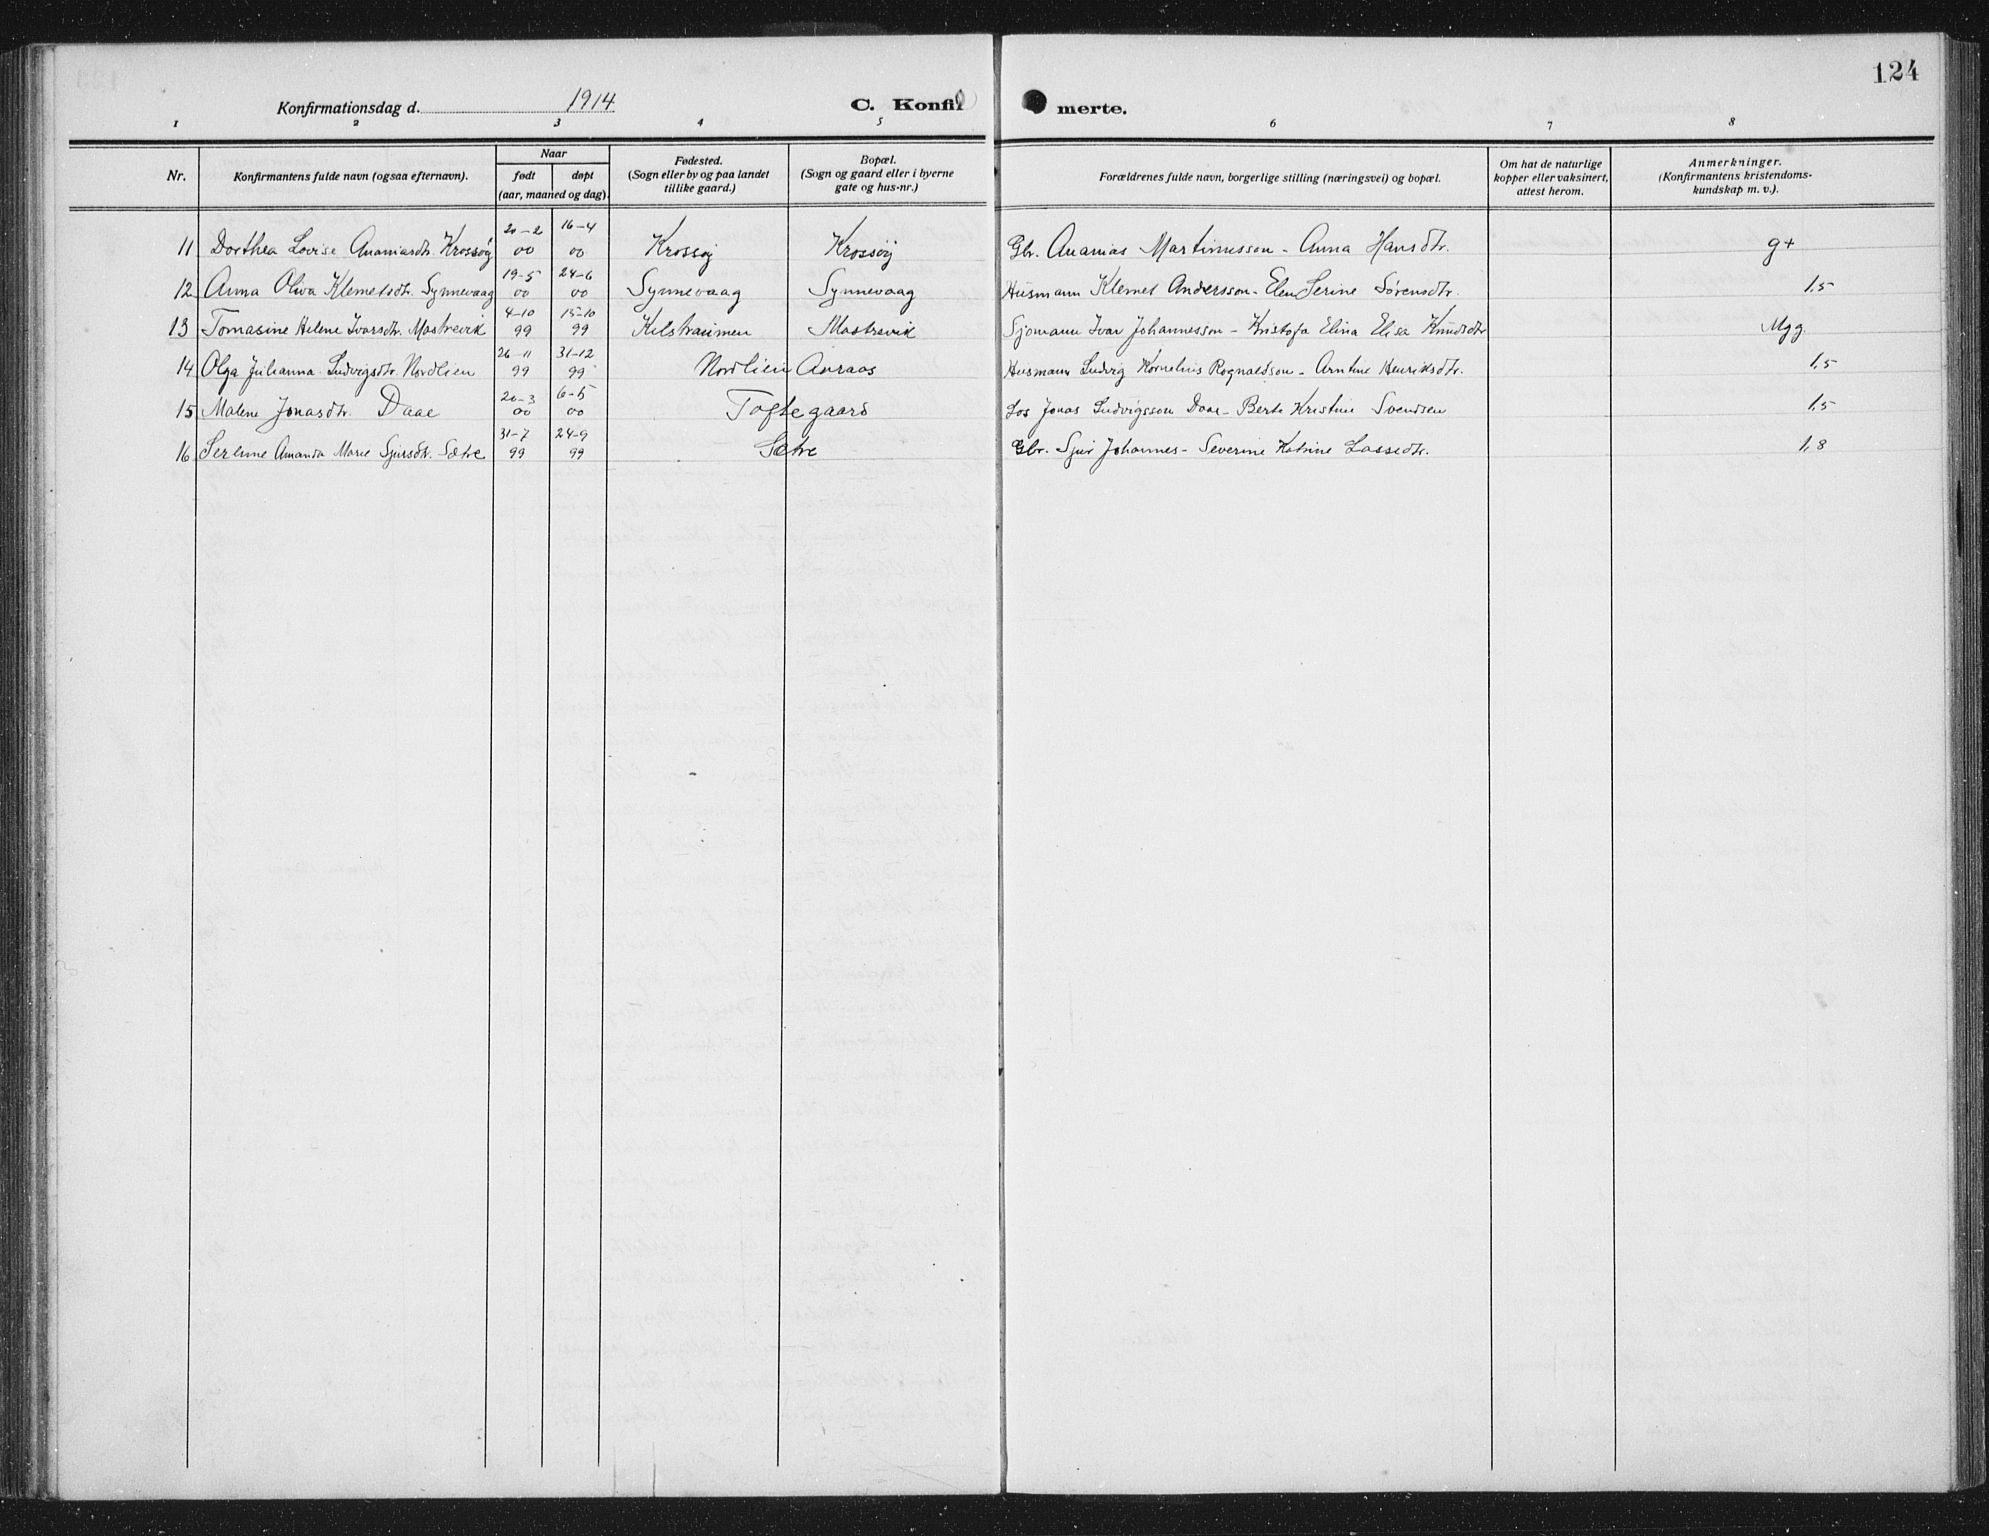 124
Konfirmationsdag d. 1914
C. Konfir merte.
1 2 3 4 5 6 7 8
Nr.
Konfirmantens fulde navn (ogsaa efternavn).
Naar
født døpt
(aar, maaned og dag).
Fødested.
(Sogn eller by og paa landet
tillike gaard.)
Bopæl.
(Sogn og gaard eller i byerne
gate og hus-nr.)
Forældrenes fulde navn, borgerlige stilling (næringsvei) og bopæl.
Om hat de naturlige
kopper eller vaksinert,
attest herom.
Anmerkninger.
(Konfirmantens kristendoms-
kundskap m. v.).
20-2 16-4
11 Dorthea Lovise Ananiasdtr. Krossøy 00 00 Krossøy Krossøy Gbr. Ananias Martinusson - Anna Hansdtr. g+
19-5 24-6
12 Anna Oliva Klemetsdtr. Synnevaag 00 00 Synnevaag Synnevaag Husmann Klemet Andersson - Elen Serine Sørensdtr. 1,5
4-10 15-10
13 Tomasine Helene Ivarsdtr. Mastrevik 99 99 Kilstraumen Mastrevik Sjømann Ivar Johannesson - Kristofa Elina Elisa Knudsdtr Mgg
26-11 31-12
14 Olga Julianna Ludvigsdtr. Nordlien 99 99 Nordlien Aaraas Husmann Ludvig Kornelius Rognaldson - Arntine Henriksdtr. 1,5
20-3 6-5
15 Malene Jonasdtr. Daae 00 00 Toftegaard Los Jonas Ludvigsson Daae - Berte Kristine Svendsen 1,5
31-7 24-9
16 Amanda Marie Sjursdtr. Sætre 99 99 Sætre Gbr. Sjur Johannes - Severine Katrine Lassedtr. 1,8